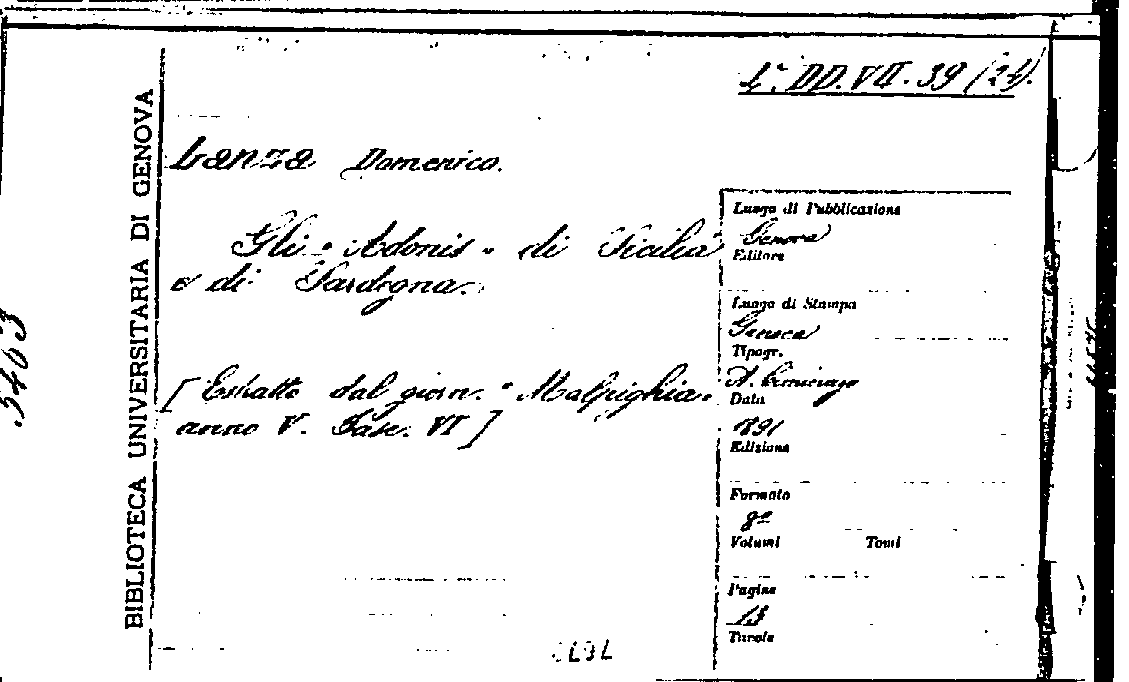 4°. DD. VII. 39 (24).
BIBLIOTECA UNIVERSITARIA DI GENOVA
Lanza Domenico.
Gli "Adonis" di Sicilia
e di Sardegna.
[Estratto dal giorn. "Malpighia"
anno V. Fasc. VI]
Luogo di Pubblicazione
Genova
Editore
Luogo di Stampa
Genova
Tipogr.
A. Ciminago
Data
1891
Edizione
Formato
8°
Volumi Tomi
Pagine
13
Tavole
3463